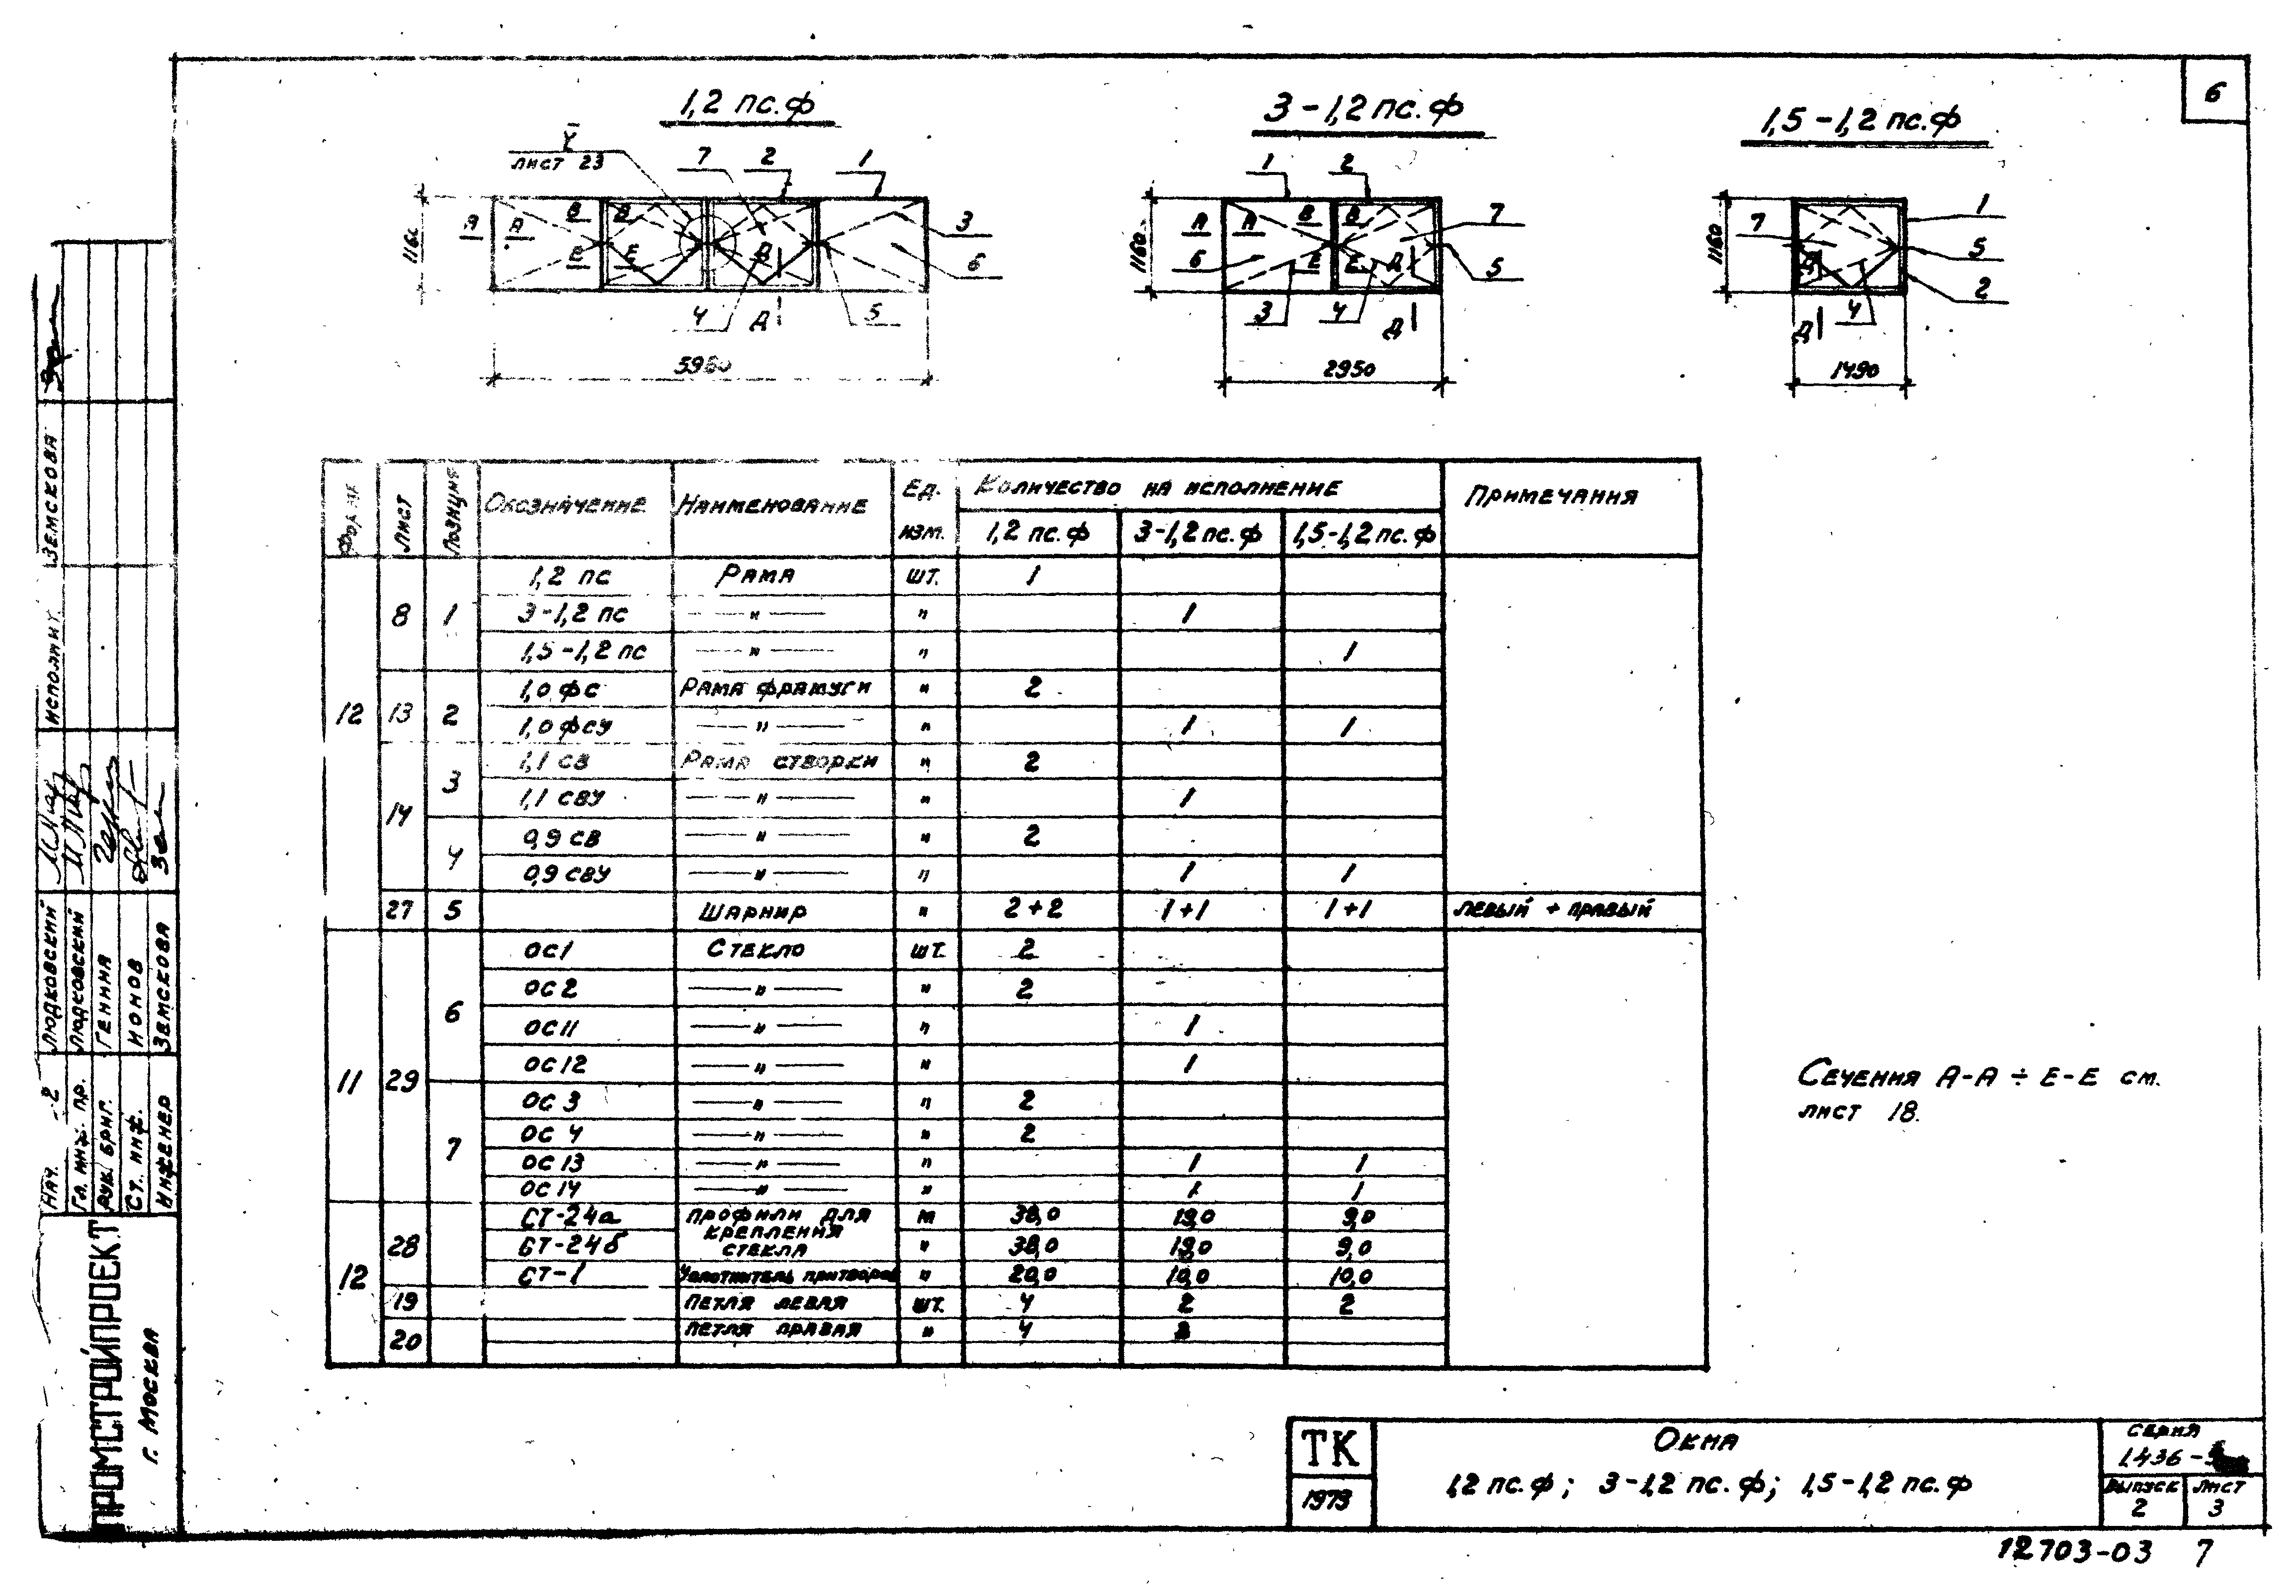 6
1,2 пс.ф
3-1,2 пс.ф
1,5-1,2 пс.ф
лист 23
7 2 1
А А В В Е Е Д
3
6
4 Д 5
5950
1 2
А А В В 7
1160 6 Е Е Д 5
3 4 Д
2950
1
7 5
1160 Д 2
Д 4
1490
Формат Лист Позиция Обозначение Наименование Ед. изм. Количество на исполнение Примечания
1,2 пс.ф 3-1,2 пс.ф 1,5-1,2 пс.ф
12 8 1 1,2 пс Рама шт. 1
3-1,2 пс — " — " 1
1,5-1,2 пс — " — " 1
13 2 1,0 фс Рама фрамуги " 2
1,0 фсу — " — " 1 1
14 3 1,1 св Рама створки " 2
1,1 сву — " — " 1
4 0,9 св — " — " 2
0,9 сву — " — " 1 1
27 5 Шарнир " 2+2 1+1 1+1 левый + правый
11 29 6 ОС1 Стекло шт. 2
ОС2 — " — " 2
ОС11 — " — " 1
ОС12 — " — " 1
7 ОС3 — " — " 2
ОС4 — " — " 2
ОС13 — " — " 1 1
ОС14 — " — " 1 1
12 28 СТ-24а Профили для крепления стекла м 38,0 19,0 9,0
СТ-24б " 38,0 19,0 9,0
СТ-1 Уплотнитель притворов " 20,0 10,0 10,0
19 Петля левая шт. 4 2 2
20 Петля правая " 4 2
Сечения А-А ÷ Е-Е см.
лист 18.
ТК
1973
Окна
1,2 пс.ф; 3-1,2 пс.ф; 1,5-1,2 пс.ф
Серия
1.436-
Выпуск 2
Лист 3
12703-03 7
Исполнит. Земскова
Нач. Людковский
Гл. инж. пр. Людковский
Рук. бриг. Генина
Ст. инж. Ионов
Инженер Земскова
ПРОМСТРОЙПРОЕКТ
г. Москва